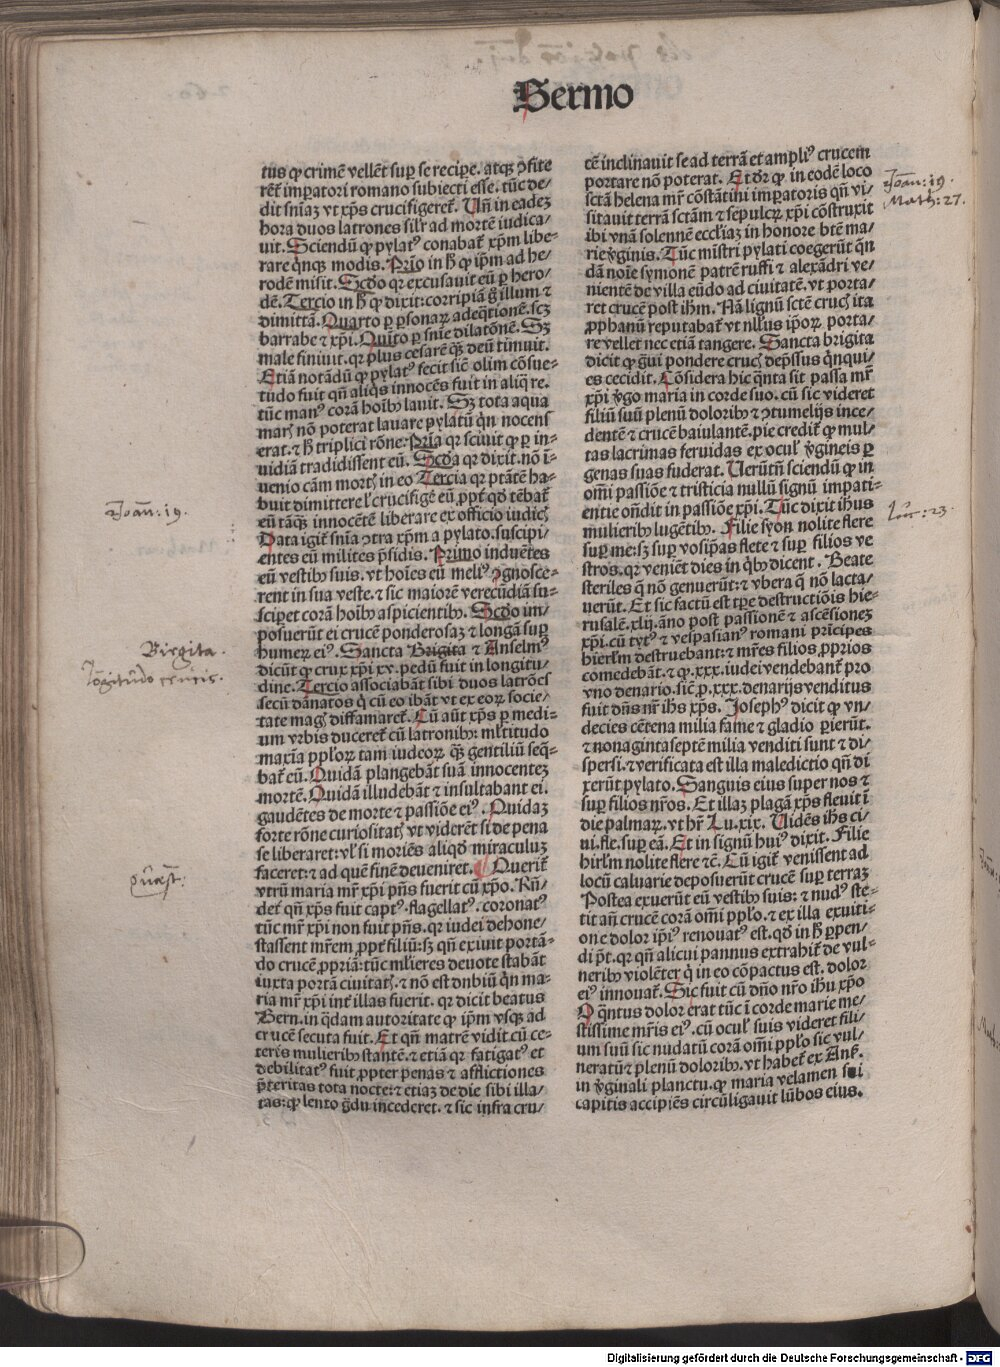 Sermo
tus qꝫ crimē vellēt suꝑ se recipe. atqꝫ ꝯfite
rēt̉ imꝑatori romano subiecti esse. tūc de/
dit snīaꝫ vt xp̄s crucifigeret̉. Vn̄ in eadeꝫ
hora duos latrones silr̄ ad mortē iudica/
uit. Sciendū qꝫ pylatꝰ conabat̉ xp̄m libe⸗
rare qͥnqꝫ modis. Prīo in hͦ qꝫ ip̄m ad he/
rodē misit. Scd̄o qr excusauit eū ꝑ hero/
dē. Tercio in hͦ qꝫ dixit: corripiā gͦ illum ⁊
dimittā. Quarto ꝑ ꝑsonaꝝ adeq̄tionē. scꝫ
barrabe ⁊ xp̄i. Quīto ꝑ snīe dilatōnē. Sꝫ
male finiuit. qr plus cesarē qͣꝫ deū timuit.
Etiā notādū qꝫ pylatꝰ fecit sic̄ olim cōsue⸗
tudo fuit qn̄ aliqͥs innocēs fuit in aliqͣ re.
tūc manꝰ corā hoībꝫ lauit. Sꝫ tota aqua
marꝭ nō poterat lauare pylatū qͥn nocens
erat. ⁊ hͦ triplici rōne: Prīa qr sciuit qꝫ ꝑ in⸗
uidiā tradidissent eū. Scd̄a qr dixit. nō ī⸗
uenio cām mortꝭ in eo Tercia qr ptātē ha⸗
buit dimittere l̓ crucifige̓ eū, ꝓpt̓ qd̓ tēbat̉
eū tāqͣꝫ innocētē liberare ex officio iudicꝭ
Data igit̉ snīa ꝯtra xp̄m a pylato. suscipi/
entes eū milites p̄sidis. Primo induētes
eū vestibꝫ suis. vt hoīes eū meliꝰ ꝯgnosce⸗
rent in sua veste. ⁊ sic maiorē verecūdiā su⸗
sciꝑet corā hoībꝫ aspicientibꝫ. Scd̄o im/
posuerūt ei crucē ponderosaꝫ ⁊ longā suꝑ
humeꝝ eiꝰ. Sancta Brigita ⁊ Anselmꝰ
dicūt qꝫ crux xp̄i xv. pedū fuit in longitu/
dine. Tercio associabāt sibi duos latrōes
secū dānatos qͥ cū eo ibāt vt ex eoꝝ socie⸗
tate magꝭ diffamaret̉. Cū aūt xp̄s ꝑ medi⸗
um vrbis duceret̉ cū latronibꝫ: ml̓titudo
maxīa ppl̓oꝝ tam iudeoꝝ qͣꝫ gentiliū seq̄⸗
bat̉ eū. Quidā plangebāt suā innocenteꝫ
mortē. Quidā illudebāt ⁊ insultabant ei.
gaudētes de morte ⁊ passiōe eiꝰ. Quidaꝫ
forte rōne curiositatꝭ vt viderēt si de pena
se liberaret: vl̓ si moriēs aliqd̓ miraculuꝫ
faceret: ⁊ ad quē finē deueniret. Querit̉
vtrū maria mr̄ xp̄i pn̄s fuerit cū xp̄o. Rn̄/
det̉ qn̄ xp̄s fuit captꝰ. flagellatꝰ. coronatꝰ
tūc mr̄ xp̄i non fuit pn̄s. qr iudei dehone/
stassent mr̄em ꝓpt̓ filiū: sꝫ qn̄ exiuit portā⸗
do crucē ꝓpriā: tūc ml̓ieres deuote stabāt
iuxta portā ciuitatꝭ. ⁊ nō est dubiū qͥn ma⸗
ria mr̄ xp̄i int̓ illas fuerit. qr dicit beatus
Bern. in qͣdam autoritate qꝫ ip̄m vsqꝫ ad
crucē secuta fuit. Et qn̄ matrē vidit cū ce⸗
teris mulieribꝫ stantē. ⁊ etiā qr fatigatꝰ et
debilitatꝰ fuit ꝓpter penas ⁊ afflictiones
p̄teritas tota nocte: ⁊ etiaꝫ de die sibi illa/
tas: qꝫ lento gͣdu incederet. ⁊ sic infra cru/
tē inclinauit se ad terrā et ampliꝰ crucem
portare nō poterat. Et dr̄ qꝫ in eodē loco
sctā helena mr̄ cōstātini imꝑatoris qn̄ vi/
sitauit terrā sctām ⁊ sepulcꝝ xp̄i cōstruxit
ibi vnā solennē eccl̓iaꝫ in honore btē ma/
rie v̓ginis. Tūc mīstri pylati coegerūt qͥn
dā noīe symonē patrē ruffi ⁊ alexādri ve/
nientē de villa eūdo ad ciuitatē. vt porta/
ret crucē post ih̄m. Nā lignū sctē crucꝭ ita
ꝓphanū reputabat̉ vt nllꝰus ip̄oꝝ porta/
re vellet nec etiā tangere. Sancta brigita
dicit qꝫ gͣui pondere crucꝭ dep̄ssus qͥnqui/
es cecidit. Cōsidera hic qͣnta sit passa mr̄
xp̄i v̓go maria in corde suo. cū sic videret
filiū suū plenū doloribꝫ ⁊ ꝯtumelijs ince/
dentē ⁊ crucē baiulantē. pie credit̉ qꝫ mul⸗
tas lacrimas feruidas ex ocul̓ v̓gineis ꝑ
genas suas fuderat. Uerūtn̄ sciendū qꝫ in
om̄i passiōe ⁊ tristicia nullū signū impati⸗
entie on̄dit in passiōe xp̄i. Tūc dixit ih̄us
mulieribꝫ lugētibꝫ. Filie syon nolite flere
suꝑ me: sꝫ suꝑ vosip̄as flete ⁊ suꝑ filios ve
stros. qr venīet dies in qͥbꝫ dicent. Beate
steriles q̄ nō genuerūt: ⁊ vbera q̄ nō lacta/
uerūt. Et sic factū est tꝑe destructiōis hie⸗
rusalē. xlij. āno post passionē ⁊ ascēsioneꝫ
xp̄i. cū tytꝰ ⁊ vespasianꝰ romani prīcipes
hierlm̄ destruebant: ⁊ mr̄es filios ꝓprios
comedebāt. ⁊ qꝫ .xxx. iudei vendebant̉ pro
vno denario. sic̄ ꝑ .xxx. denarijs venditus
fuit dn̄s nr̄ ih̄s xp̄s. Josephꝰ dicit qꝫ vn/
decies cētena milia fame ⁊ gladio ꝑierūt.
⁊ nonagintaseptē milia venditi sunt ⁊ di⸗
spersi. ⁊ verificata est illa maledictio qn̄ di
xerūt pylato. Sanguis eius super nos ⁊
suꝑ filios nr̄os. Et illaꝫ plagā xp̄s fleuit ī
die palmaꝝ. vt hr̄ Lu. xix. Uidēs ih̄s ci/
ui. fle. suꝑ eā. Et in signū huiꝰ dixit. Filie
hirlm̄ nolite flere ⁊c̄. Cū igit̉ venissent ad
locū caluarie deposuerūt crucē suꝑ terraꝫ
Postea exuerūt eū vestibꝫ suis: ⁊ nudꝰ ste⸗
tit an̄ crucē corā om̄i ppl̓o. ⁊ ex illa exuiti⸗
one dolor ip̄iꝰ renouatꝰ est. qd̓ in hͦ ꝑpen/
di p̄t. qr qn̄ alicui pannus extrahit̉ de vul⸗
neribꝫ violēter qͥ in eo cōpactus est. dolor
eiꝰ innouat̉. Sic fuit cū dn̄o nr̄o ih̄u xp̄o
O qͣntus dolor erat tūc ī corde marie me⸗
stissime mr̄is eiꝰ. cū ocul̓ suis videret fili/
um suū sic nudatū corā om̄i ppl̓o sic vul/
neratū ⁊ plenū doloribꝫ. vt habet̉ ex Anẜ.
in v̓ginali planctu. qꝫ maria velamen sui
capitis accipiēs circūligauit lūbos eius.
Joan: 19.
Math: 27.
Joan: 19.
Luc: 23.
Birgita.
Lōgitudo crucis.
Quæst:
Digitalisierung gefördert durch die Deutsche Forschungsgemeinschaft - DFG